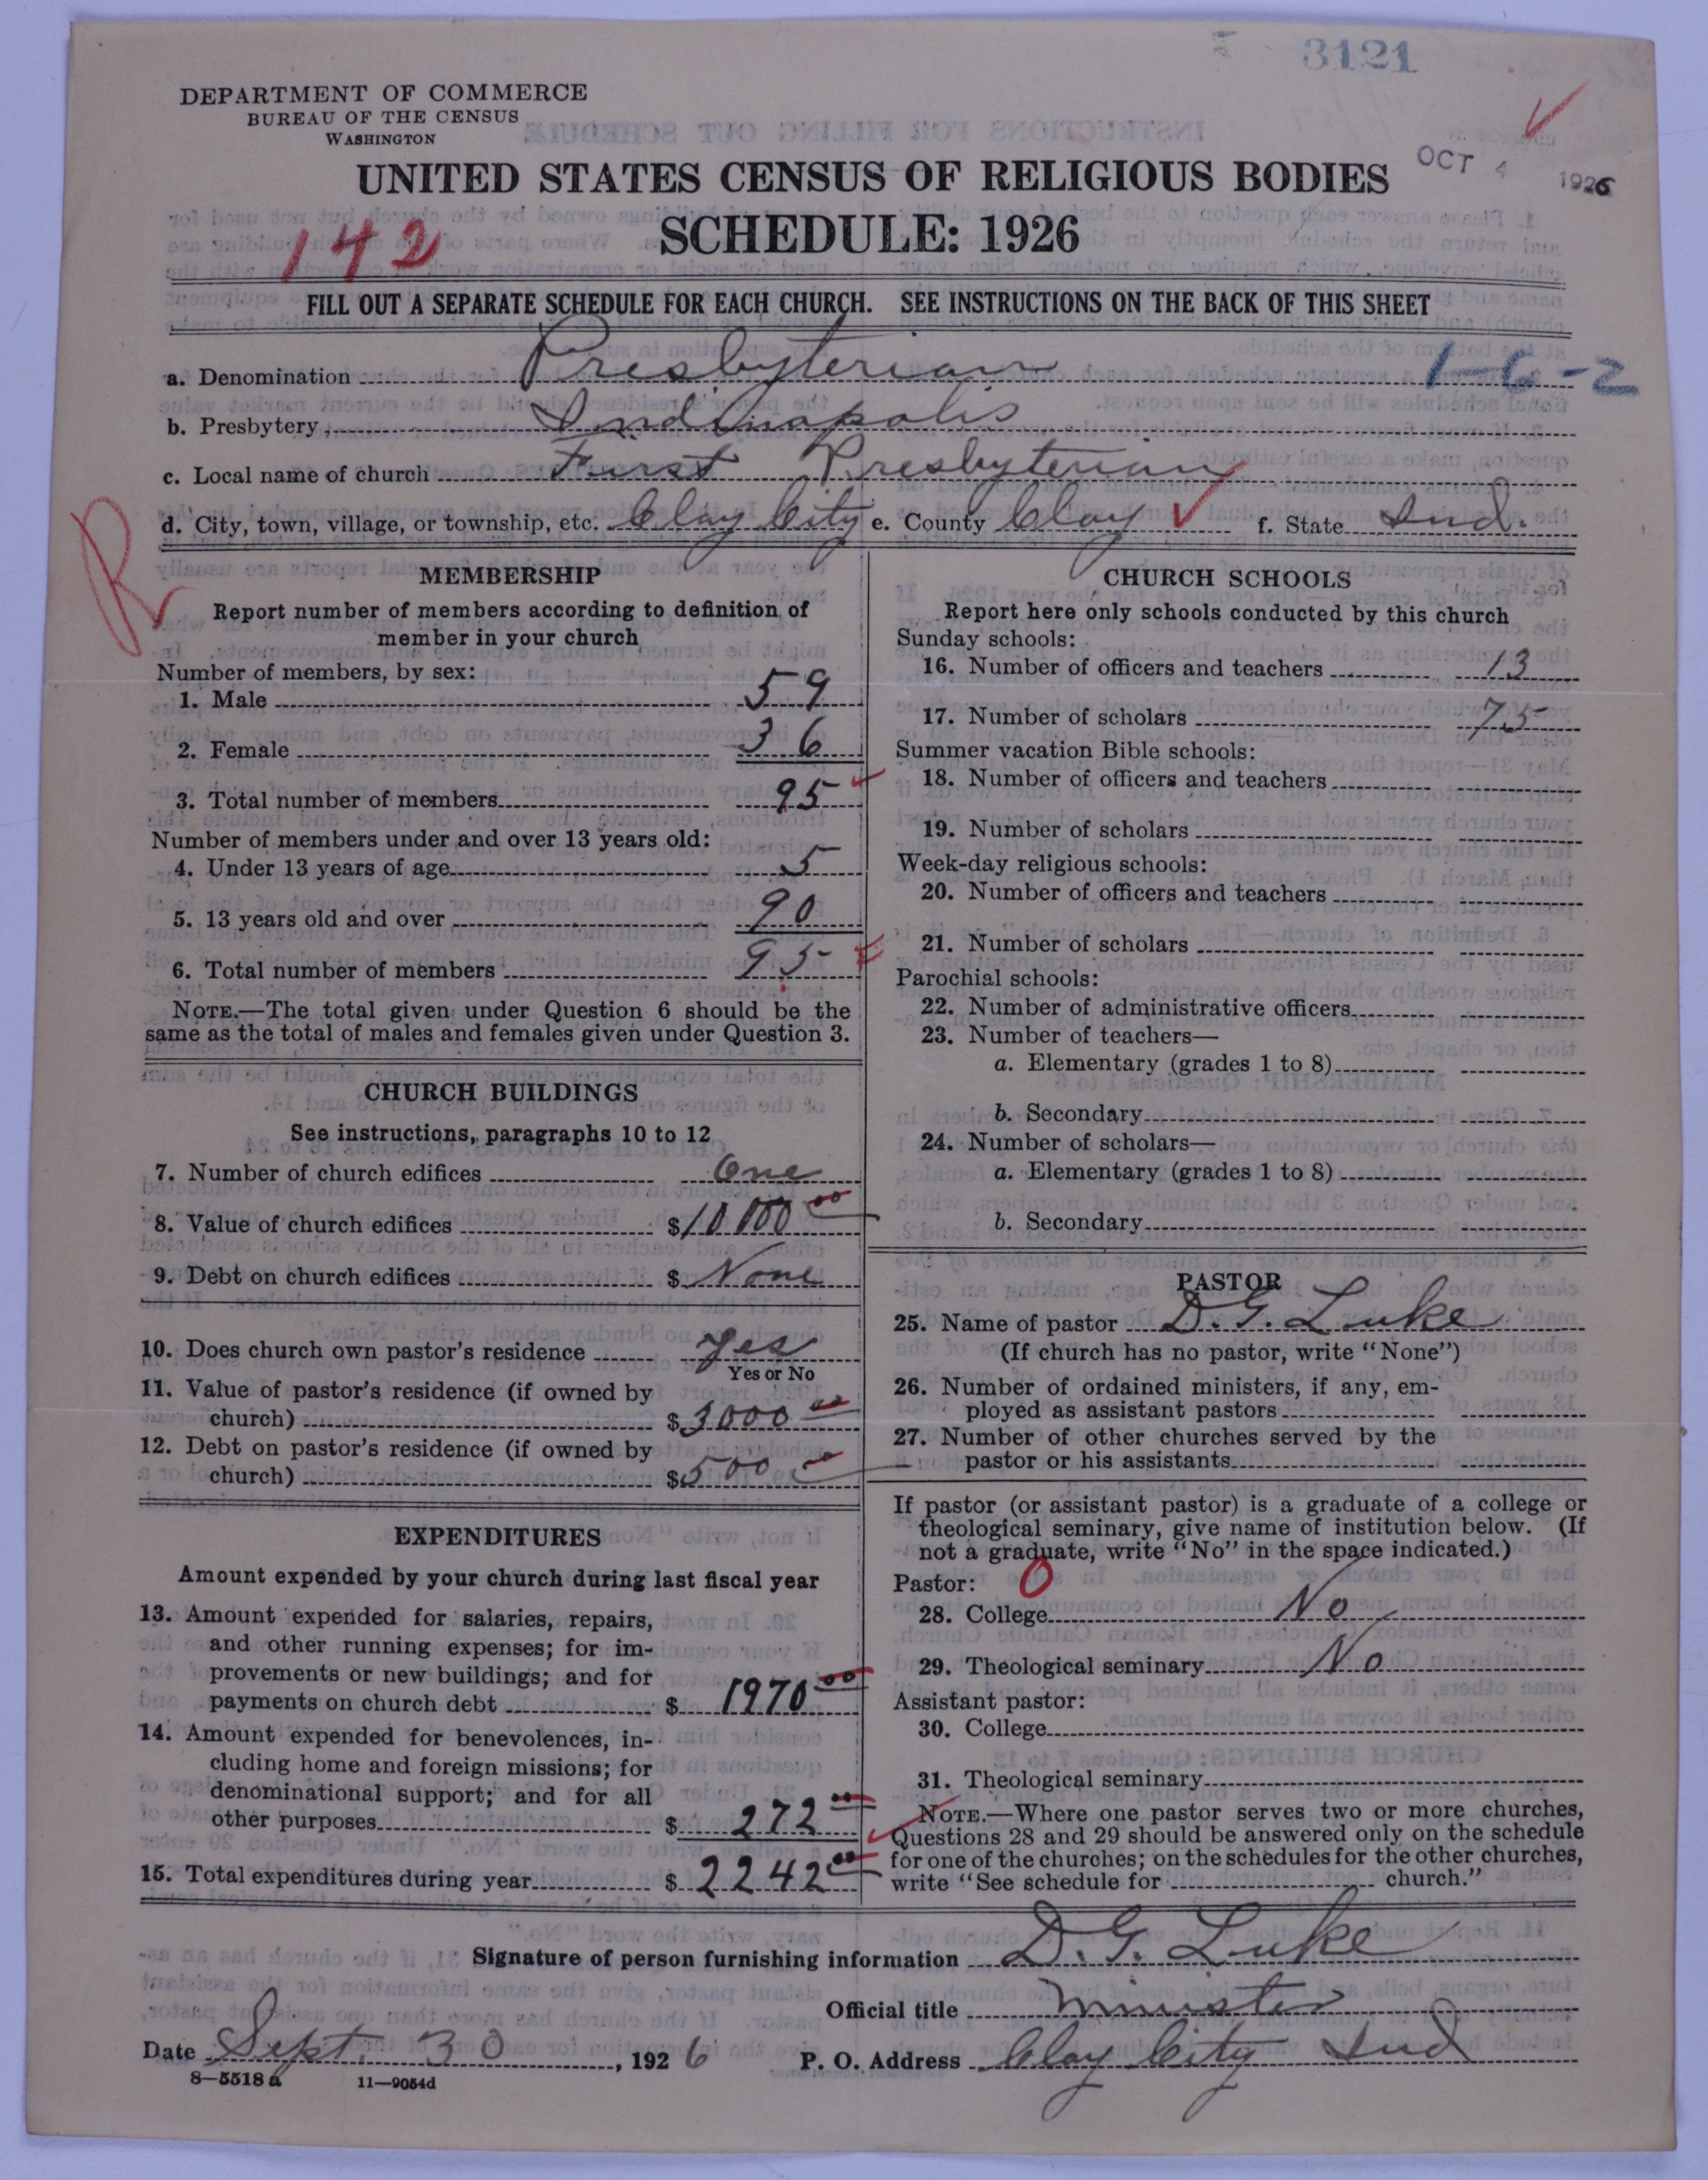 3121
DEPARTMENT OF COMMERCE
BUREAU OF THE CENSUS
WASHINGTON
UNITED STATES CENSUS OF RELIGIOUS BODIES
OCT 4 1926
SCHEDULE: 1926
142
FILL OUT A SEPARATE SCHEDULE FOR EACH CHURCH. SEE INSTRUCTIONS ON THE BACK OF THIS SHEET
a. Denomination Presbyterian 1-6-2
b. Presbytery, Indianapolis
c. Local name of church First Presbyterian
d. City, town, village, or township, etc. Clay City e. County Clay f. State Ind.
R
MEMBERSHIP
Report number of members according to definition of
member in your church
Number of members, by sex:
1. Male 59
2. Female 36
3. Total number of members 95
Number of members under and over 13 years old:
4. Under 13 years of age 5
5. 13 years old and over 90
6. Total number of members 95
NOTE.—The total given under Question 6 should be the
same as the total of males and females given under Question 3.
CHURCH BUILDINGS
See instructions, paragraphs 10 to 12
7. Number of church edifices One
8. Value of church edifices $10000 00
9. Debt on church edifices $ None
10. Does church own pastor's residence Yes
Yes or No
11. Value of pastor's residence (if owned by
church) $3000 00
12. Debt on pastor's residence (if owned by
church) $500
EXPENDITURES
Amount expended by your church during last fiscal year
13. Amount expended for salaries, repairs,
and other running expenses; for im-
provements or new buildings; and for
payments on church debt $ 1970 00
14. Amount expended for benevolences, in-
cluding home and foreign missions; for
denominational support; and for all
other purposes $ 272 00
15. Total expenditures during year $ 2242 00
CHURCH SCHOOLS
Report here only schools conducted by this church
Sunday schools:
16. Number of officers and teachers 13
17. Number of scholars 75
Summer vacation Bible schools:
18. Number of officers and teachers
19. Number of scholars
Week-day religious schools:
20. Number of officers and teachers
21. Number of scholars
Parochial schools:
22. Number of administrative officers
23. Number of teachers—
a. Elementary (grades 1 to 8)
b. Secondary
24. Number of scholars—
a. Elementary (grades 1 to 8)
b. Secondary
PASTOR
25. Name of pastor D. G. Luke
(If church has no pastor, write "None")
26. Number of ordained ministers, if any, em-
ployed as assistant pastors
27. Number of other churches served by the
pastor or his assistants
If pastor (or assistant pastor) is a graduate of a college or
theological seminary, give name of institution below. (If
not a graduate, write "No" in the space indicated.)
Pastor: 0
28. College No
29. Theological seminary No
Assistant pastor:
30. College
31. Theological seminary
NOTE.—Where one pastor serves two or more churches,
Questions 28 and 29 should be answered only on the schedule
for one of the churches; on the schedules for the other churches,
write "See schedule for church."
Signature of person furnishing information D. G. Luke
Official title Minister
Date Sept. 30, 1926 P. O. Address Clay City Ind
8-5518 a 11—9054d